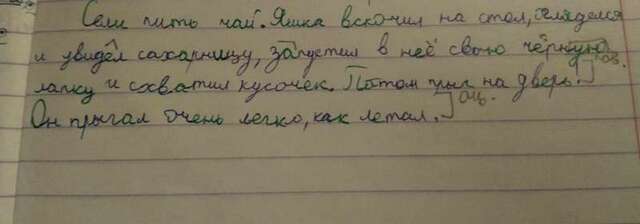 Сели пить чай. Яшка вскочил на стол, огляделся
и увидел сахарницу, запустил в неё свою чёрную
лапку и схватил кусочек. Потом прыг на дверь.
Он прыгал очень легко, как летал.